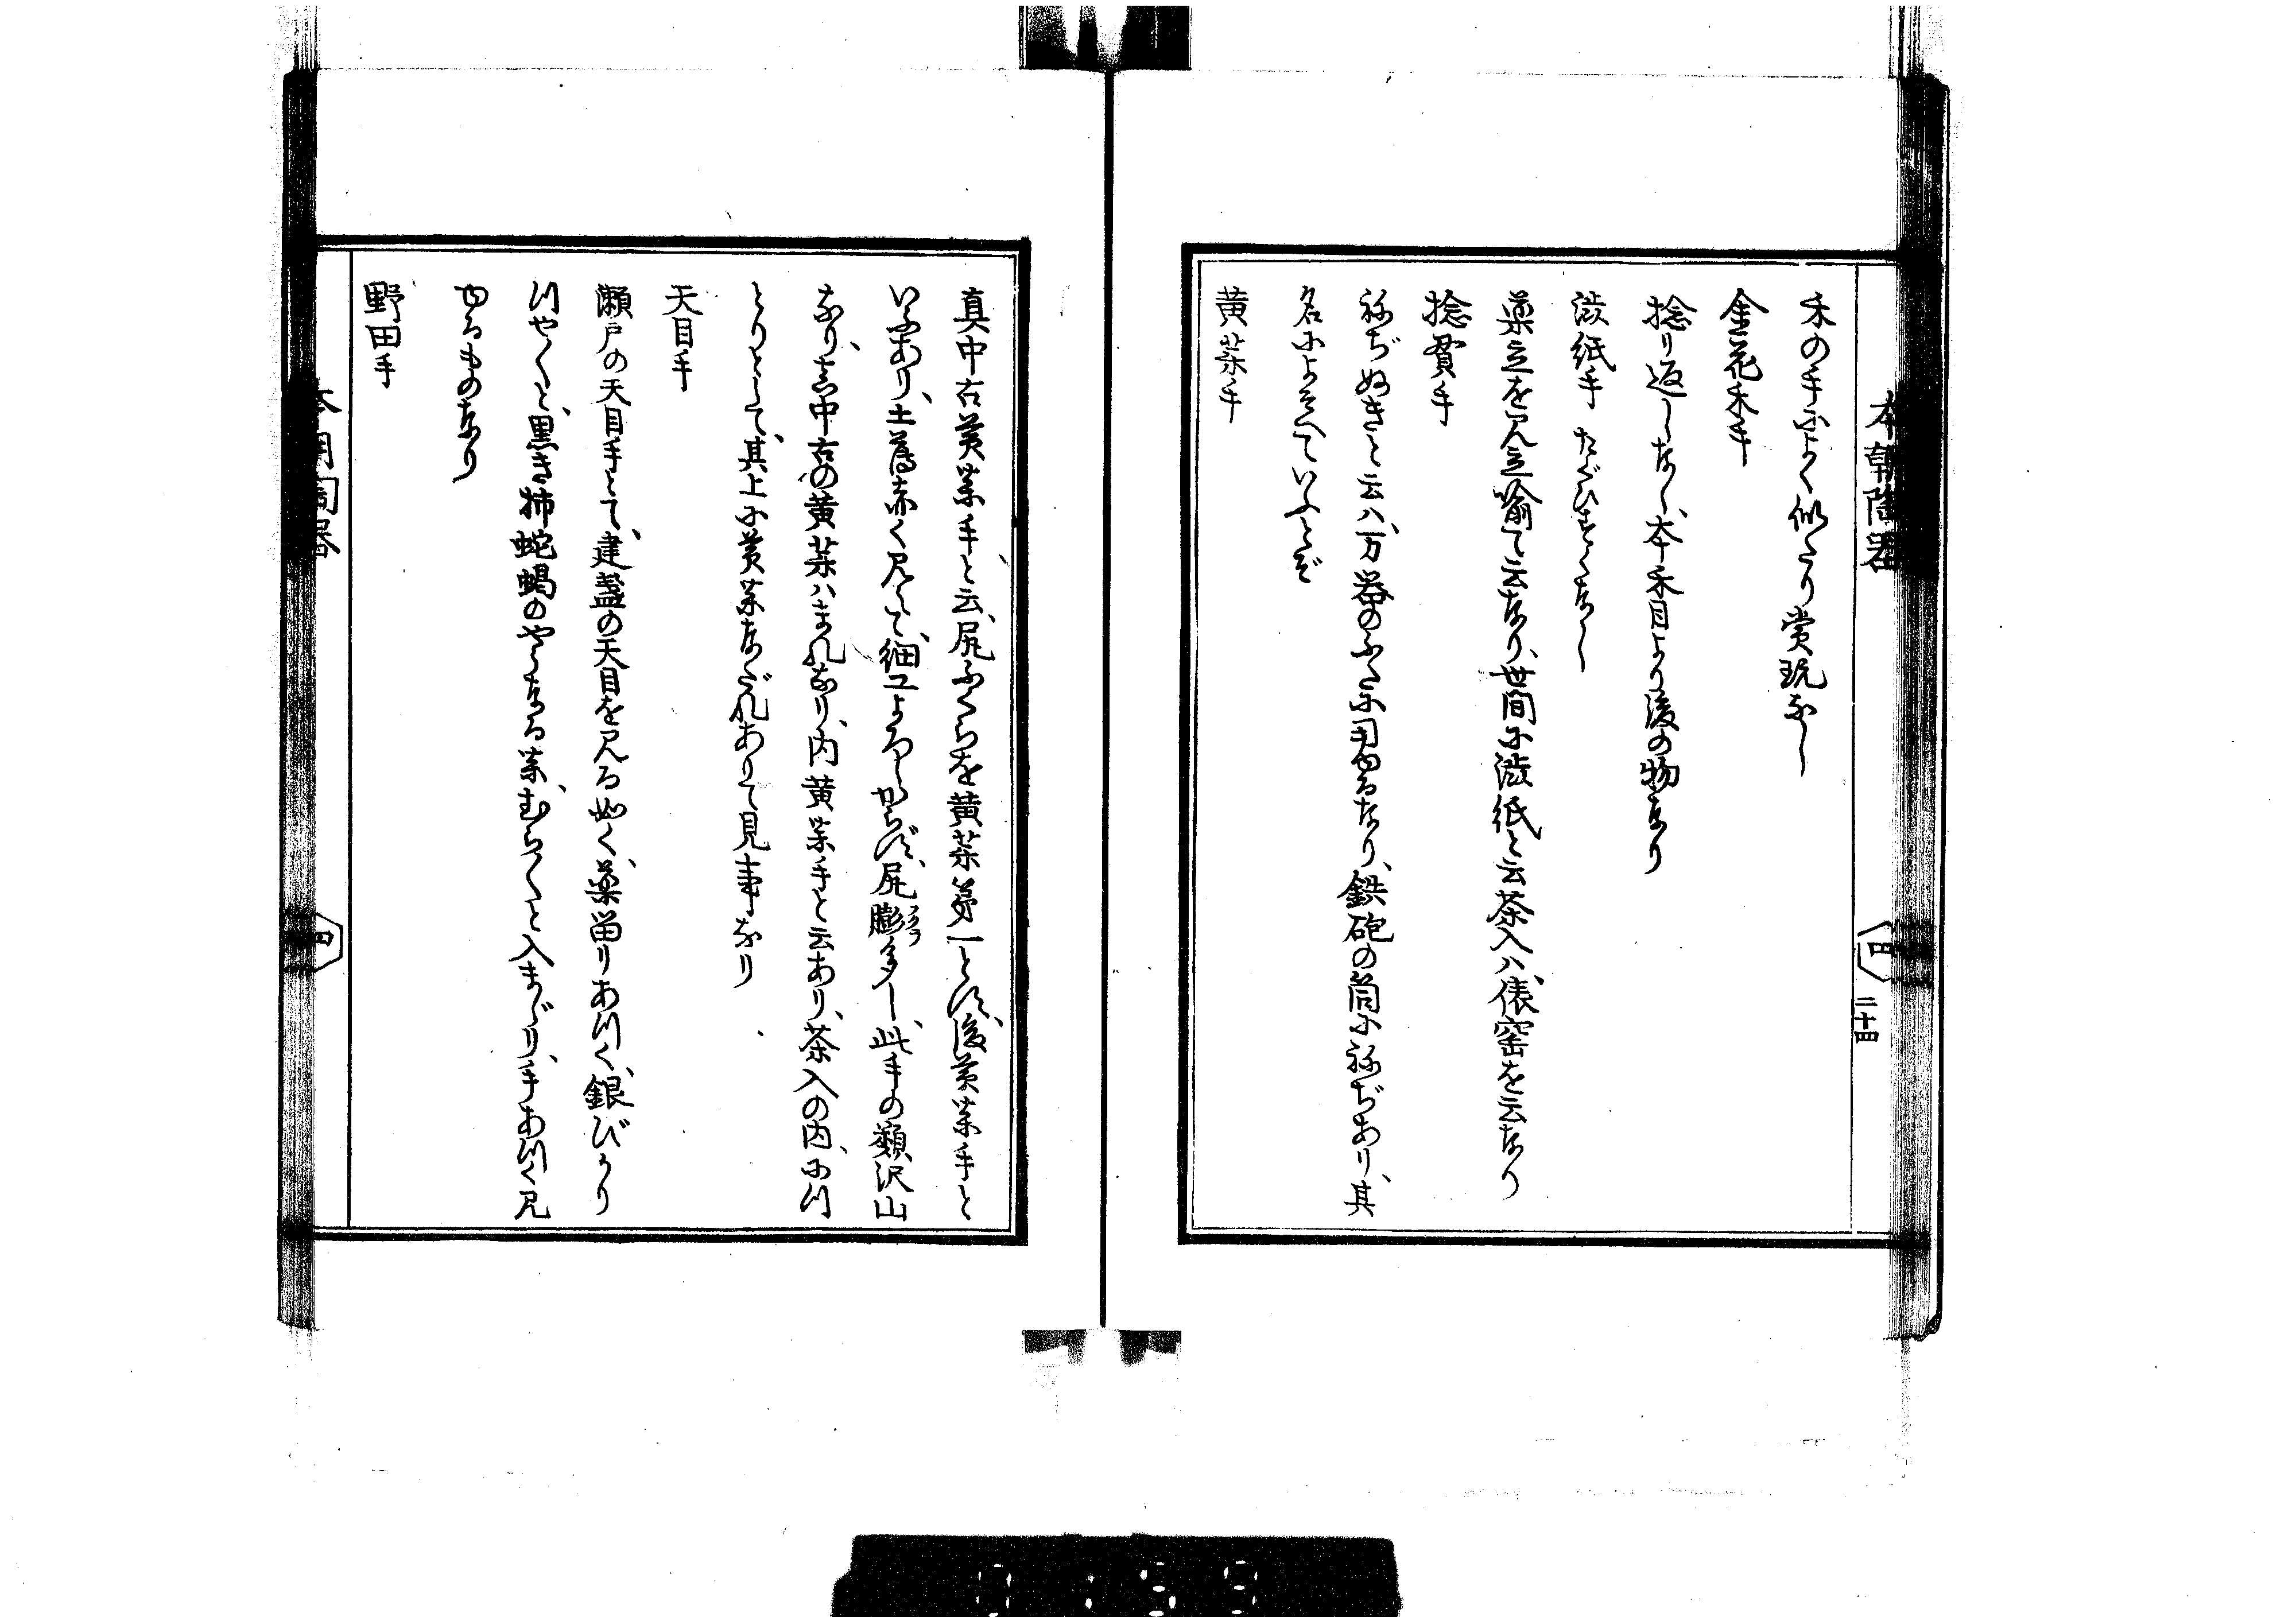 禾の手によく似たり賞玩なし
金花禾手
捻り返しなし、本禾目より後の物なり
渋紙手 たぐひすくなし
薬立を見立喩て云なり、世間に渋紙と云茶入ハ、俵窑を云なり
捻貫手
ねぢぬきと云ハ、万器のふたに用ゆるなり、鉄砲の筒にねぢあり、其
名によそへていふとぞ
黄薬手
本朝陶器
四
二十四
真中古黄薬手と云、尻ふくらを黄薬第一とす、後黄薬手と
いふあり、土薄赤く見へて、細工よろしからず、尻膨多し、此手の類沢山
なり、真中古の黄薬ハまれなり、内黄薬手と云あり、茶入の内、にっ
とりとして、其上に黄薬なだれありて見事なり
天目手
瀬戸の天目手とて、建盞の天目を見る如く、薬畄りあつく、銀びかり
つや〳〵と、黒き柿蛇蝎のやうなる薬、むら〳〵と入まじり、手あつく見
ゆるものなり
野田手
四